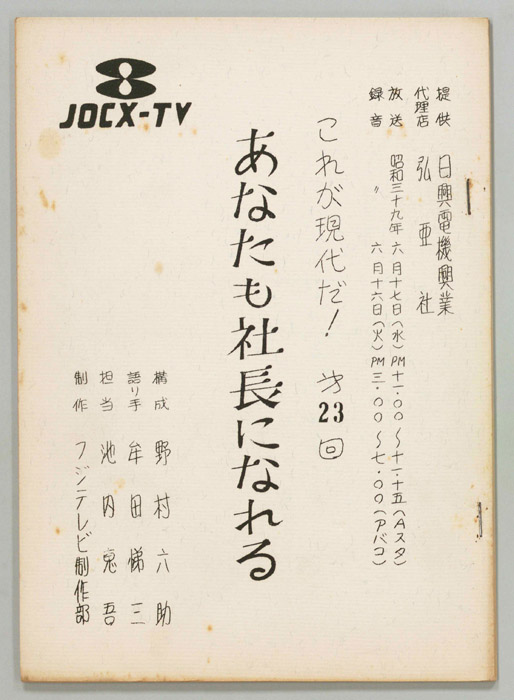 提供 日興電機興業
代理店 弘亜社
放送 昭和三十九年 六月十七日(水) PM十一・〇〇〜十一・十五(Aスタ)
録音 〃 六月十六日(火) PM三・〇〇〜七・〇〇(アバコ)
これが現代だ! 才23回
あなたも社長になれる
8
JOCX-TV
構成 野村六助
語り手 牟田悌三
担当 池内 吾
制作 フジテレビ制作部